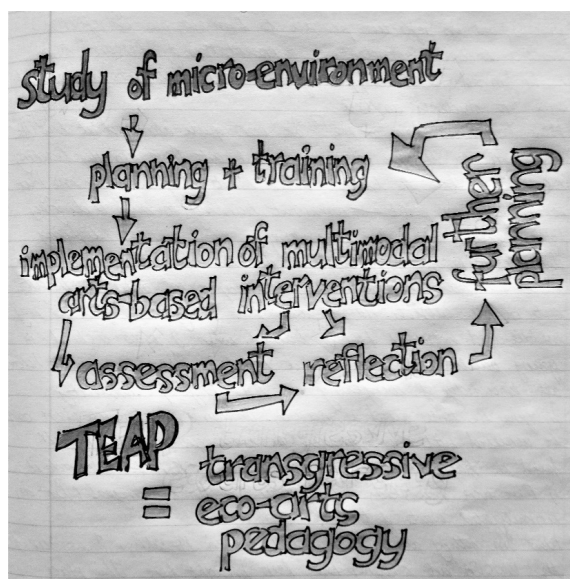 study of micro-environment
planning + training
further
planning
implementation of multimodal
arts-based interventions
assessment reflection
TEAP
= transgressive
eco-arts
pedagogy